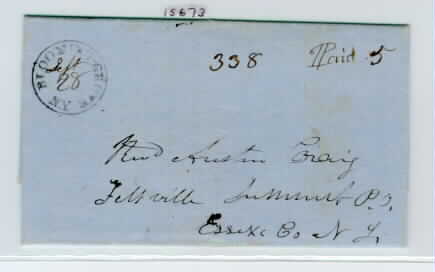 15673
338 Paid 5
BLOOMINGBURGH NY
Sept
28
Revd Austin Craig
Feltville Summit P.O.
Essex Co N J.